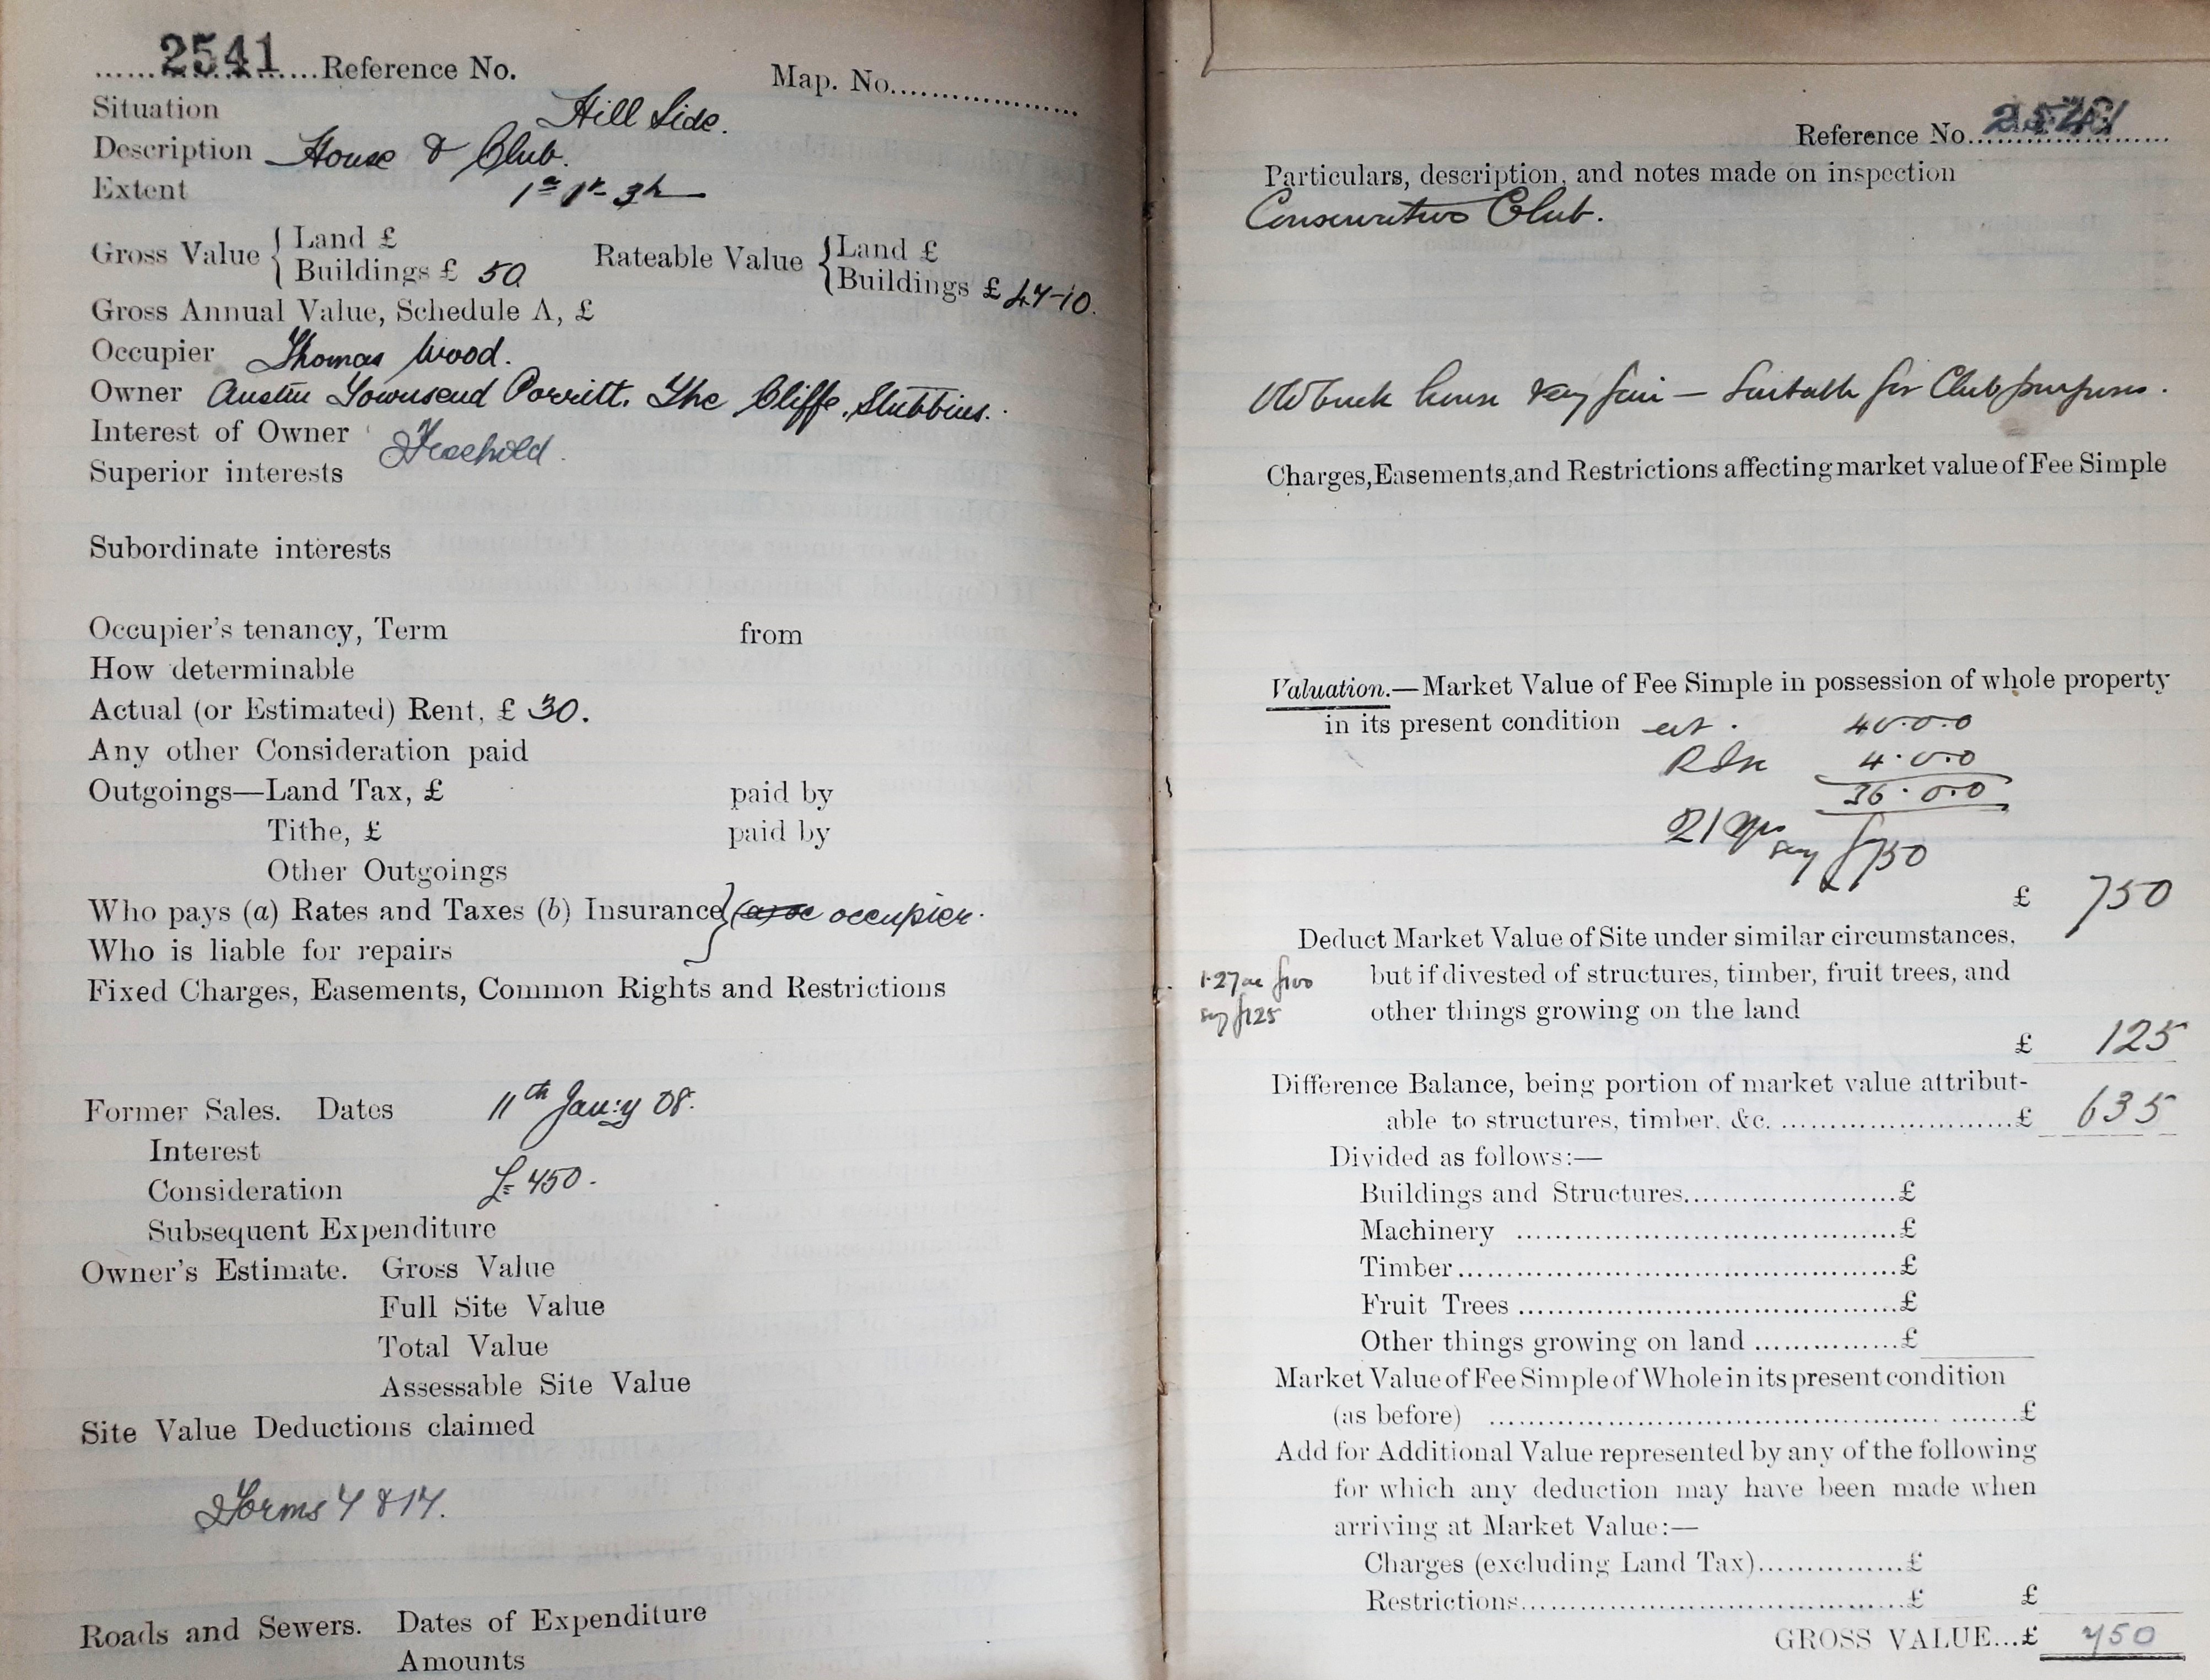 2541 Reference No. Map. No.
Situation Hill Side.
Description House & Club.
Extent 1a 1r 3
Gross Value { Land £
Buildings £ 50
Rateable Value { Land £
Buildings £ 47-10.
Gross Annual Value, Schedule A, £
Occupier Thomas Wood.
Owner Austin Townsend Porritt. The Cliffe, Stubbins.
Interest of Owner Freehold.
Superior interests
Subordinate interests
Occupier's tenancy, Term from
How determinable
Actual (or Estimated) Rent, £ 30.
Any other Consideration paid
Outgoings—Land Tax, £ paid by
Tithe, £ paid by
Other Outgoings
Who pays (a) Rates and Taxes (b) Insurance } occupier.
Who is liable for repairs
Fixed Charges, Easements, Common Rights and Restrictions
Former Sales. Dates 11th Jan:y 08.
Interest
Consideration £450.
Subsequent Expenditure
Owner's Estimate. Gross Value
Full Site Value
Total Value
Assessable Site Value
Site Value Deductions claimed
Forms 4 & 14.
Roads and Sewers. Dates of Expenditure
Amounts
Reference No. 2541
Particulars, description, and notes made on inspection
Conservative Club.
Old house very fair — Suitable for Club purposes.
Charges, Easements, and Restrictions affecting market value of Fee Simple
Valuation.—Market Value of Fee Simple in possession of whole property
in its present condition est. 40.0.0
4.0.0
36.0.0
21 yrs
say £750
£ 750
Deduct Market Value of Site under similar circumstances,
1.27 ac £100 but if divested of structures, timber, fruit trees, and
say £125 other things growing on the land
£ 125
Difference Balance, being portion of market value attribut-
able to structures, timber, &c. £ 635
Divided as follows:—
Buildings and Structures £
Machinery £
Timber £
Fruit Trees £
Other things growing on land £
Market Value of Fee Simple of Whole in its present condition
(as before) £
Add for Additional Value represented by any of the following
for which any deduction may have been made when
arriving at Market Value:—
Charges (excluding Land Tax) £
Restrictions £ £
GROSS VALUE...£ 750